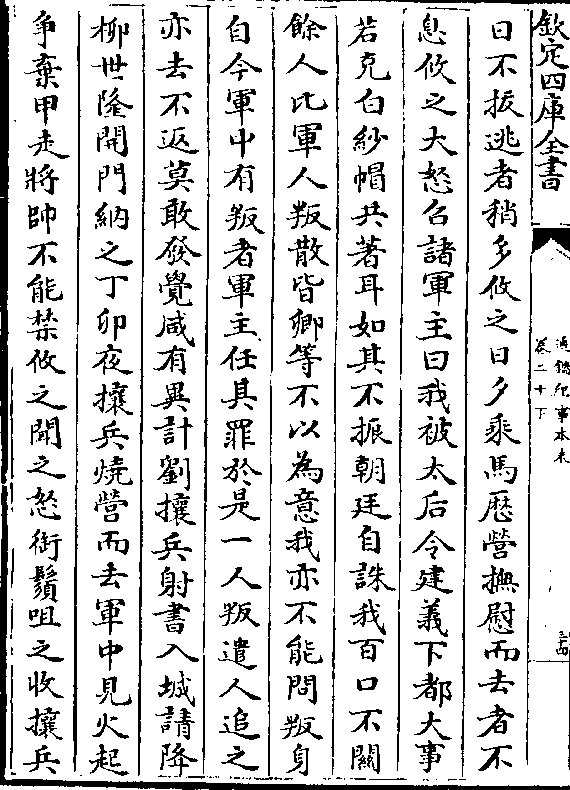 欽定四庫全書
通鑑紀事本末
卷二十下
日不拔逃者稍多攸之日夕乗馬歴營撫慰而去者不
息攸之大怒召諸軍主曰我被太后令建義下都大事
若克白紗帽共著耳如其不振朝廷自誅我百口不關
餘人比軍人叛散皆卿等不以為意我亦不能問叛身
自今軍中有叛者軍主任其罪於是一人叛遣人追之
亦去不返莫敢發覺咸有異計劉攘兵射書入城請降
柳世隆開門納之丁卯夜攘兵燒營而去軍中見火起
争棄甲走將帥不能禁攸之聞之怒銜鬚咀之收攘兵